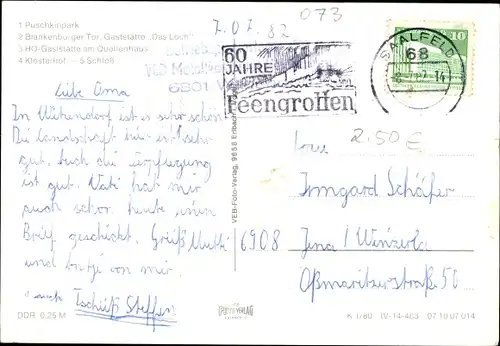 1 Puschkinpark
2 Blankenburger Tor, Gaststätte „Das Loch"
3 HO-Gaststätte am Quellenhaus
4 Klosterhof — 5 Schloß
7.07.82
073
60
JAHRE
Feengrotten
SAALFELD
68
10
6801
Liebe Oma
In ist es sehr schön.
Die Landschaft hier ist sehr
gut. Auch die Verpflegung
ist gut. Vati hat mir
auch schon heute einen
Brief geschickt. Grüß Mutti
und von mir.
auch Tschüß Steffen
VEB-Foto-Verlag, 9658 Erlbach
2.50 €
Irmgard Schäfer
6908 Jena/Winzerla
Oßmaritzerstraße 50
DDR 0,25 M
FOTO VERLAG
K 1/80 IV-14-483 07 10 07 014